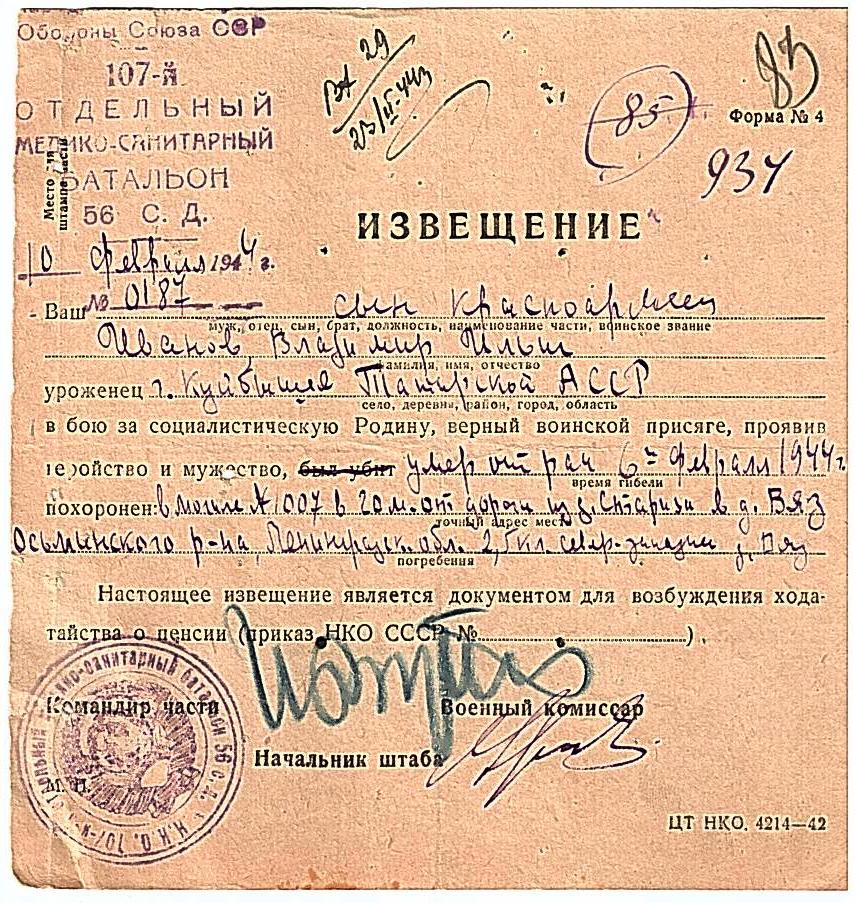 Обороны Союза ССР
107-й
ОТДЕЛЬНЫЙ
МЕДИКО-САНИТАРНЫЙ
БАТАЛЬОН
56 С. Д.
Место для
штампа части
29
85
83
Форма № 4
934
ИЗВЕЩЕНИЕ
10 февраля 1944 г.
№ 0187
Ваш сын красноармеец
муж, отец, сын, брат, должность, наименование части, воинское звание
Иванов, Владимир Ильич
фамилия, имя, отчество
уроженец г. Куйбышев Татарской АССР
село, деревня, район, город, область
в бою за социалистическую Родину, верный воинской присяге, проявив
геройство и мужество, был убит умер от ран 6го февраля 1944 г.
время гибели
похоронен: в могиле № 1007 в 20 м. от дороги из д. в д. Вяз
точный адрес места
Осьминского р-на, Ленинградск. обл. 2,5 кл. север-западнее д. Вяз
погребения
Настоящее извещение является документом для возбуждения хода-
тайства о пенсии (приказ НКО СССР № )
Командир части
Военный комиссар
Начальник штаба
М. П.
ЦТ НКО. 4214—42